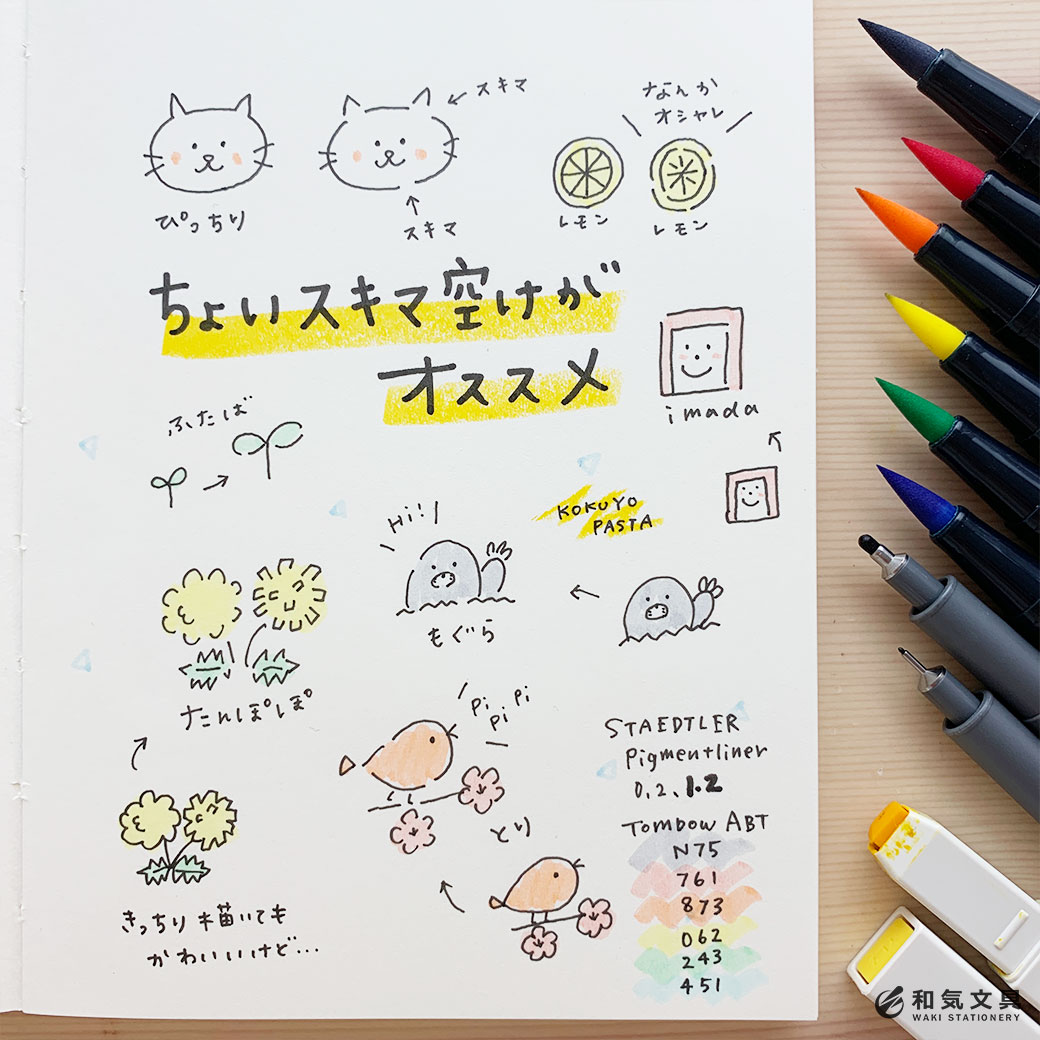 スキマ
ぴっちり
スキマ
なんか
オシャレ
レモン
レモン
ちょいスキマ空けが
オススメ
imada
ふたば
Hi!
KOKUYO
PASTA
もぐら
たんぽぽ
Pi
Pi
Pi
とり
きっちり描いても
かわいいけど...
STAEDTLER
Pigmentliner
0.2、1.2
TOMBOW ABT
N75
761
873
062
243
451
和気文具
WAKI STATIONERY